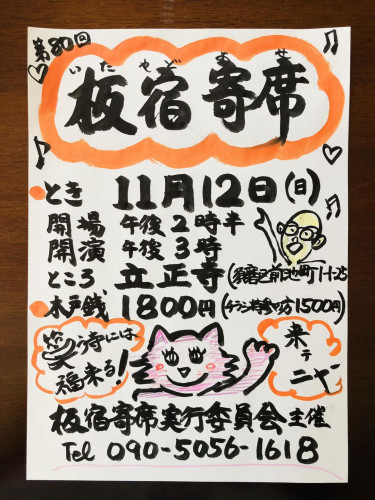 第80回
いたやどよせ
板宿寄席
とき 11月12日(日)
開場 午後2時半
開演 午後3時
ところ 立正寺(須磨区前池町1-1-25)
木戸銭 1800円(チラシ持参の方1500円)
笑う寺には
福来る!
来テ
ニャ
板宿寄席実行委員会主催
Tel 090-5056-1618